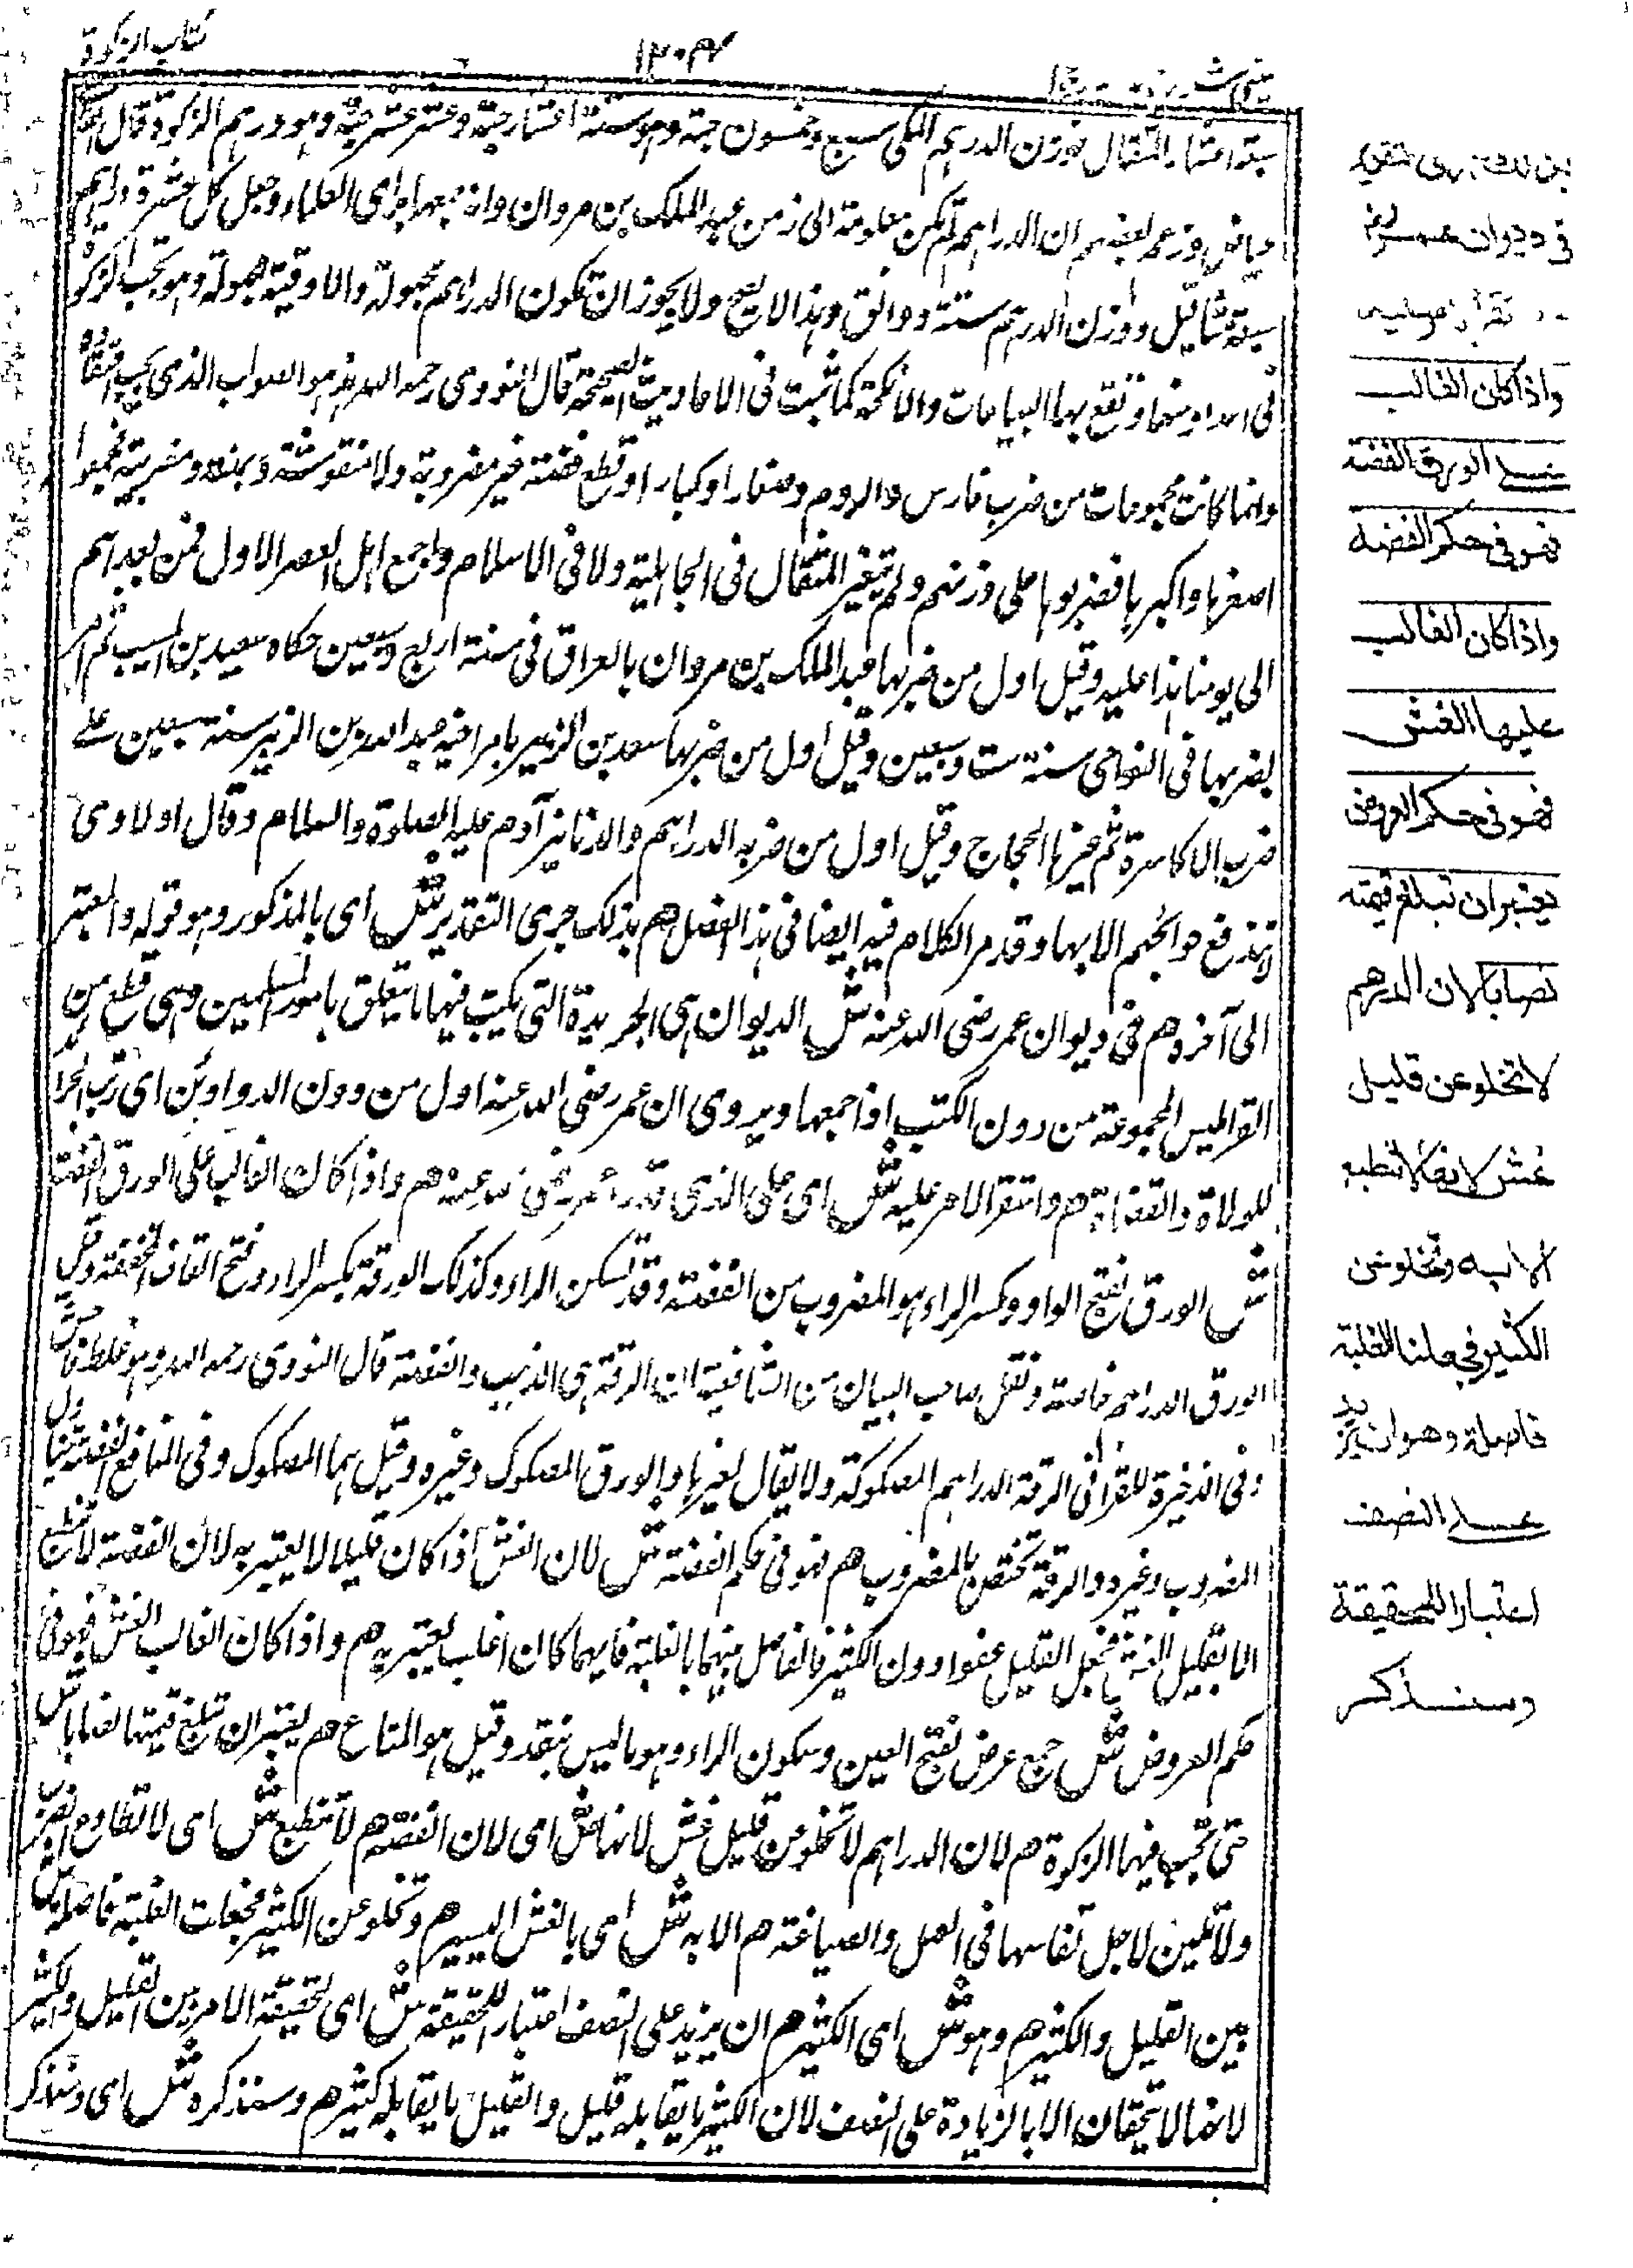 كتاب الزكوة
١٢٠٣
ستة اعشار المثقال فوزن الدرهم المكى سبع وخمسون حبة وهو ستة اعشار حبة وعشر عشر حبة وهو درهم الزكوة قال
عياض وزعم بعضهم ان الدراهم لم تكن معلومة الى زمن عبد الملك بن مروان وانه جمعها براى العلماء وجعل كل عشرة دراهم
سبعة مثاقيل ووزن الدرهم ستة دوانق وهذا لا يصح ولا يجوز ان تكون الدراهم مجهولة والاوقية مجهولة وهو يجب الزكوة
فى اعداد منها وتقع بها البياعات والانكحة كما ثبت فى الاحاديث الصحيحة قال النووى رحمه الله هذا هو الصواب الذى يجب اعتقاده
وانما كانت مجموعات من ضرب فارس والروم وصغارا وكبارا وقطع فضة غير مضروبة ولا منقوشة ويمنية ومغربية فجمعوا
اصغرها واكبرها فضربوها على وزنهم ولم يتغير المثقال فى الجاهلية ولا فى الاسلام واجمع اهل العصر الاول فمن بعدهم
الى يومنا هذا عليه وقيل اول من ضربها عبد الملك بن مروان بالعراق فى سنة اربع وسبعين حكاه سعيد بن المسيب ثم امر
بضربها فى النواحى سنة ست وسبعين وقيل اول من ضربها سعد بن الزبير بامر اخيه عبد الله بن الزبير سنة سبعين على
ضرب الاكاسرة ثم غيرها الحجاج وقيل اول من ضربه الدراهم والدنانير آدم عليه الصلوة والسلام وقال اولادى
لا تندفع حوائجهم الا بها وقد مر الكلام فيه ايضا فى هذا الفصل هم بذلك جرى التقدير ش اى بالمذكور وهو قوله والمعتبر
الى آخره هم فى ديوان عمر رضى الله عنه ش الديوان هى الجريدة التى يكتب فيها ما يتعلق بامور المسلمين وهى قطع من
القراطيس المجموعة من دون الكتب اذا جمعها ويروى ان عمر رضى الله عنه اول من دون الدواوين اى رتب الجرائد
للولاة والقضاة هم واستقر الامر عليه ش اى على الذى قدره عمر رضى الله عنه هم واذا كان الغالب على الورق الفضة
ش الورق بفتح الواو وكسر الراء هو المضروب من الفضة وقد تسكن الراء وكذلك الورقة بكسر الراء وفتح القاف المخففة وقيل
الورق الدراهم خاصة ونقل صاحب البيان من الشافعية ان الرقة هى الذهب والفضة قال النووى رحمه الله وهو غلط فاحش
وفى الذخيرة للقرافى الرقة الدراهم المسكوكة ولا يقال لغيرها والورق المسكوك وغيره وقيل هما المسكوك وفى المنافع الفضة تتناول
المضروب وغيره والرقة تختص بالمضروب هم فهو فى حكم الفضة ش لان الغش اذا كان قليلا لا يعتبر به لان الفضة لا تنطبع
الا بقليل الغش فجعل القليل عفوا دون الكثير فالفاصل بينهما بالغلبة فايهما كان اغلب يعتبر به هم واذا كان الغالب الغش فهو فى
حكم العروض ش جمع عرض بفتح العين وسكون الراء وهو ما ليس بنقد وقيل هو المتاع هم يعتبر ان تبلغ قيمتها نصابا ش
حتى تجب فيها الزكوة هم لان الدراهم لا تخلو عن قليل غش لانها ش اى لان الفضة هم لا تنطبع ش اى لا تطاوع الضرب
ولا تلين لاجل نفاستها فى العمل والصياغة هم الا به ش اى بالغش اليسير هم وتخلو عن الكثير فجعلت الغلبة فاصلة ش
بين القليل والكثير هم وهو ش اى الكثير هم ان يزيد على النصف اعتبارا للحقيقة ش اى لحقيقة الامر بين القليل والكثير
لانهما لا يتحققان الا بالزيادة على النصف لان الكثير ما يقابله قليل والقليل ما يقابله كثير هم وسنذكره ش اى وسنذكر
فى ديوان عمر
واذا كان الغالب
على الورق الفضة
فهو فى حكم الفضة
واذا كان الغالب
عليها الغش
فهو فى حكم العروض
يعتبر ان تبلغ قيمته
نصابا لان الدرهم
لا تخلو عن قليل
غش لانها لا تنطبع
الا به وتخلو عن
الكثير فجعلنا الغلبة
فاصلة وهو ان يزيد
على النصف
اعتبارا للحقيقة
وسنذكر